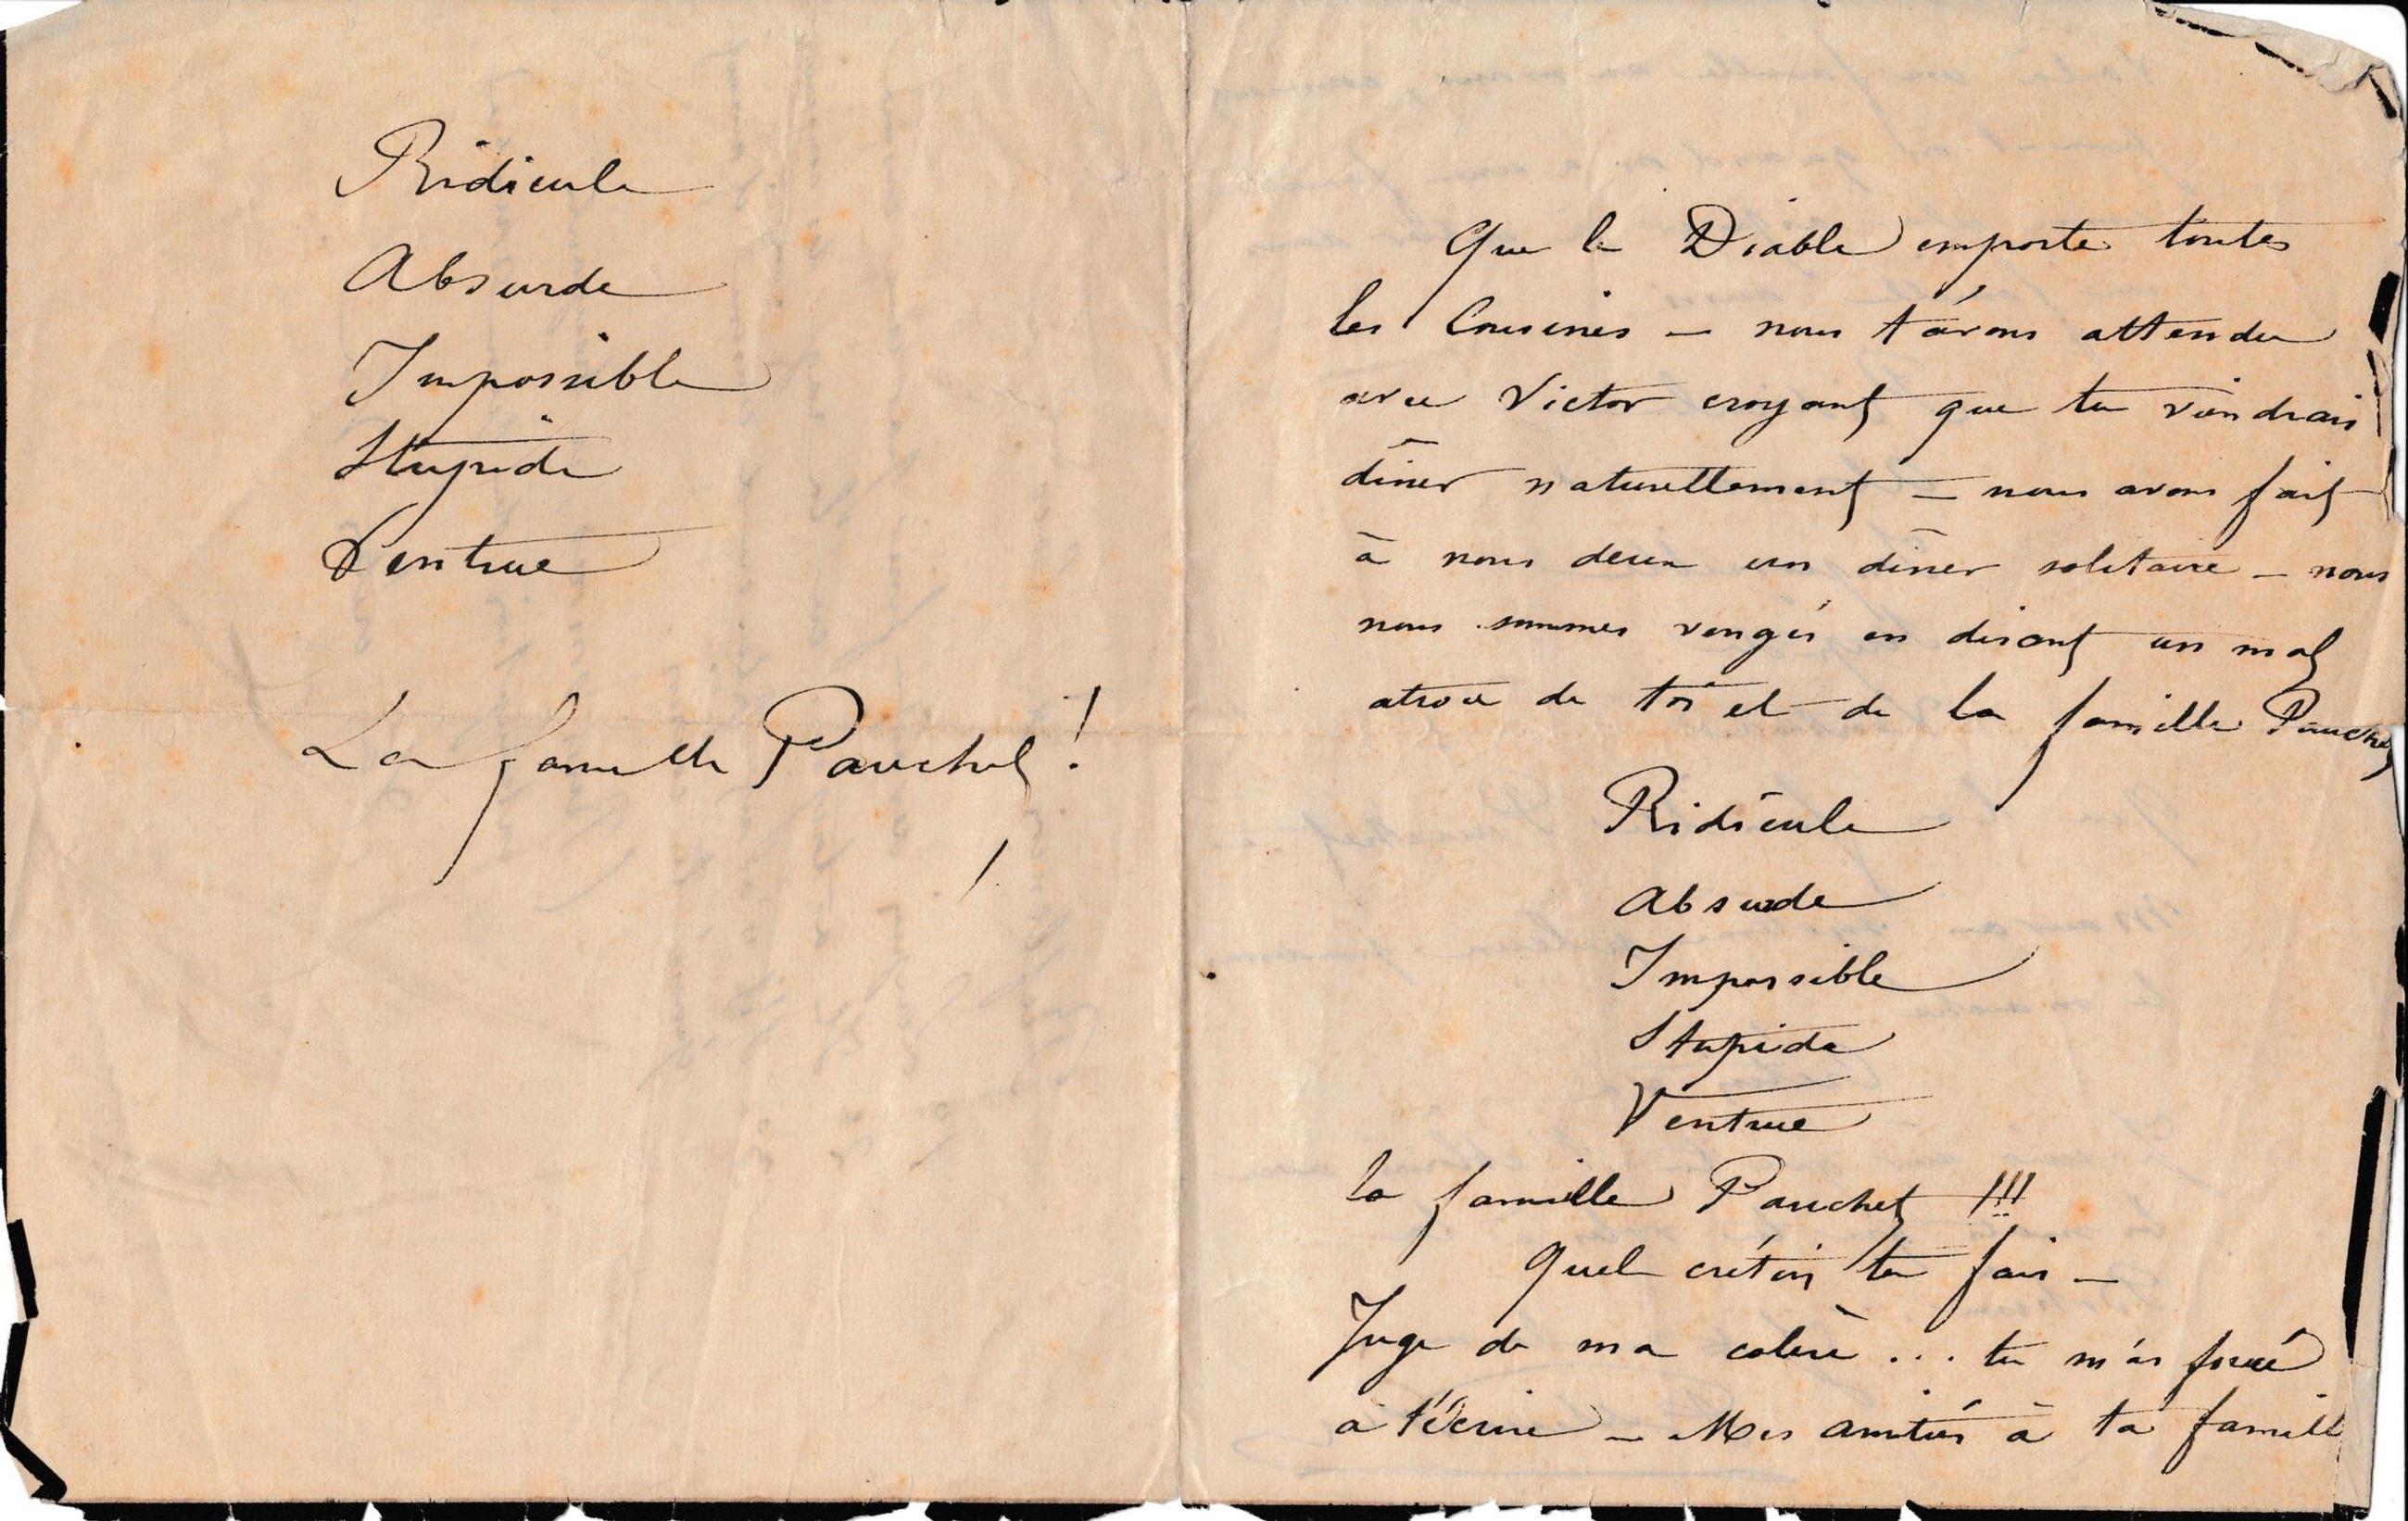 Ridicule
Absurde
Impossible
Stupide
Ventrue
La famille Pauchet !
!
Que le Diable emporte toutes
les Cousines – nous t'avons attendu
avec Victor croyant que tu viendrais
dîner naturellement – nous avons fait
à nous deux un dîner solitaire – nous
nous sommes vengés en disant un mal
atroce de toi et de la famille Pauchet
Ridicule
Absurde
Impossible
Stupide
Ventrue
la famille Pauchet !!!
Quel crétin tu fais –
Juge de ma colère ... tu m'as forcé
à t'écrire – Mes amitiés à ta famill